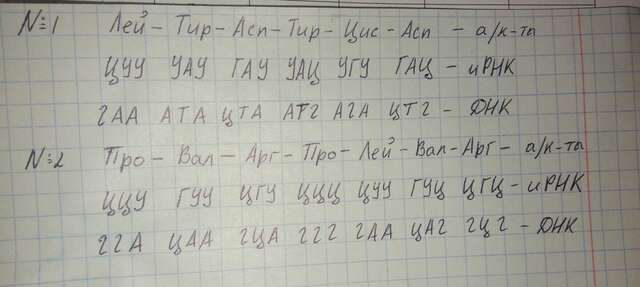 №1 Лей – Тир – Асп – Тир – Цис – Асп – а/к-ты
ЦУУ УАУ ГАУ УАЦ УГУ ГАЦ – иРНК
ГАА АТА ЦТА АТГ АГА ЦТГ – ДНК
№2 Про – Вал – Арг – Про – Лей – Вал – Арг – а/к-ты
ЦЦУ ГУУ ЦГУ ЦЦЦ ЦУУ ГУЦ ЦГЦ – иРНК
ГГА ЦАА ГЦА ГГГ ГАА ЦАГ ГЦГ – ДНК